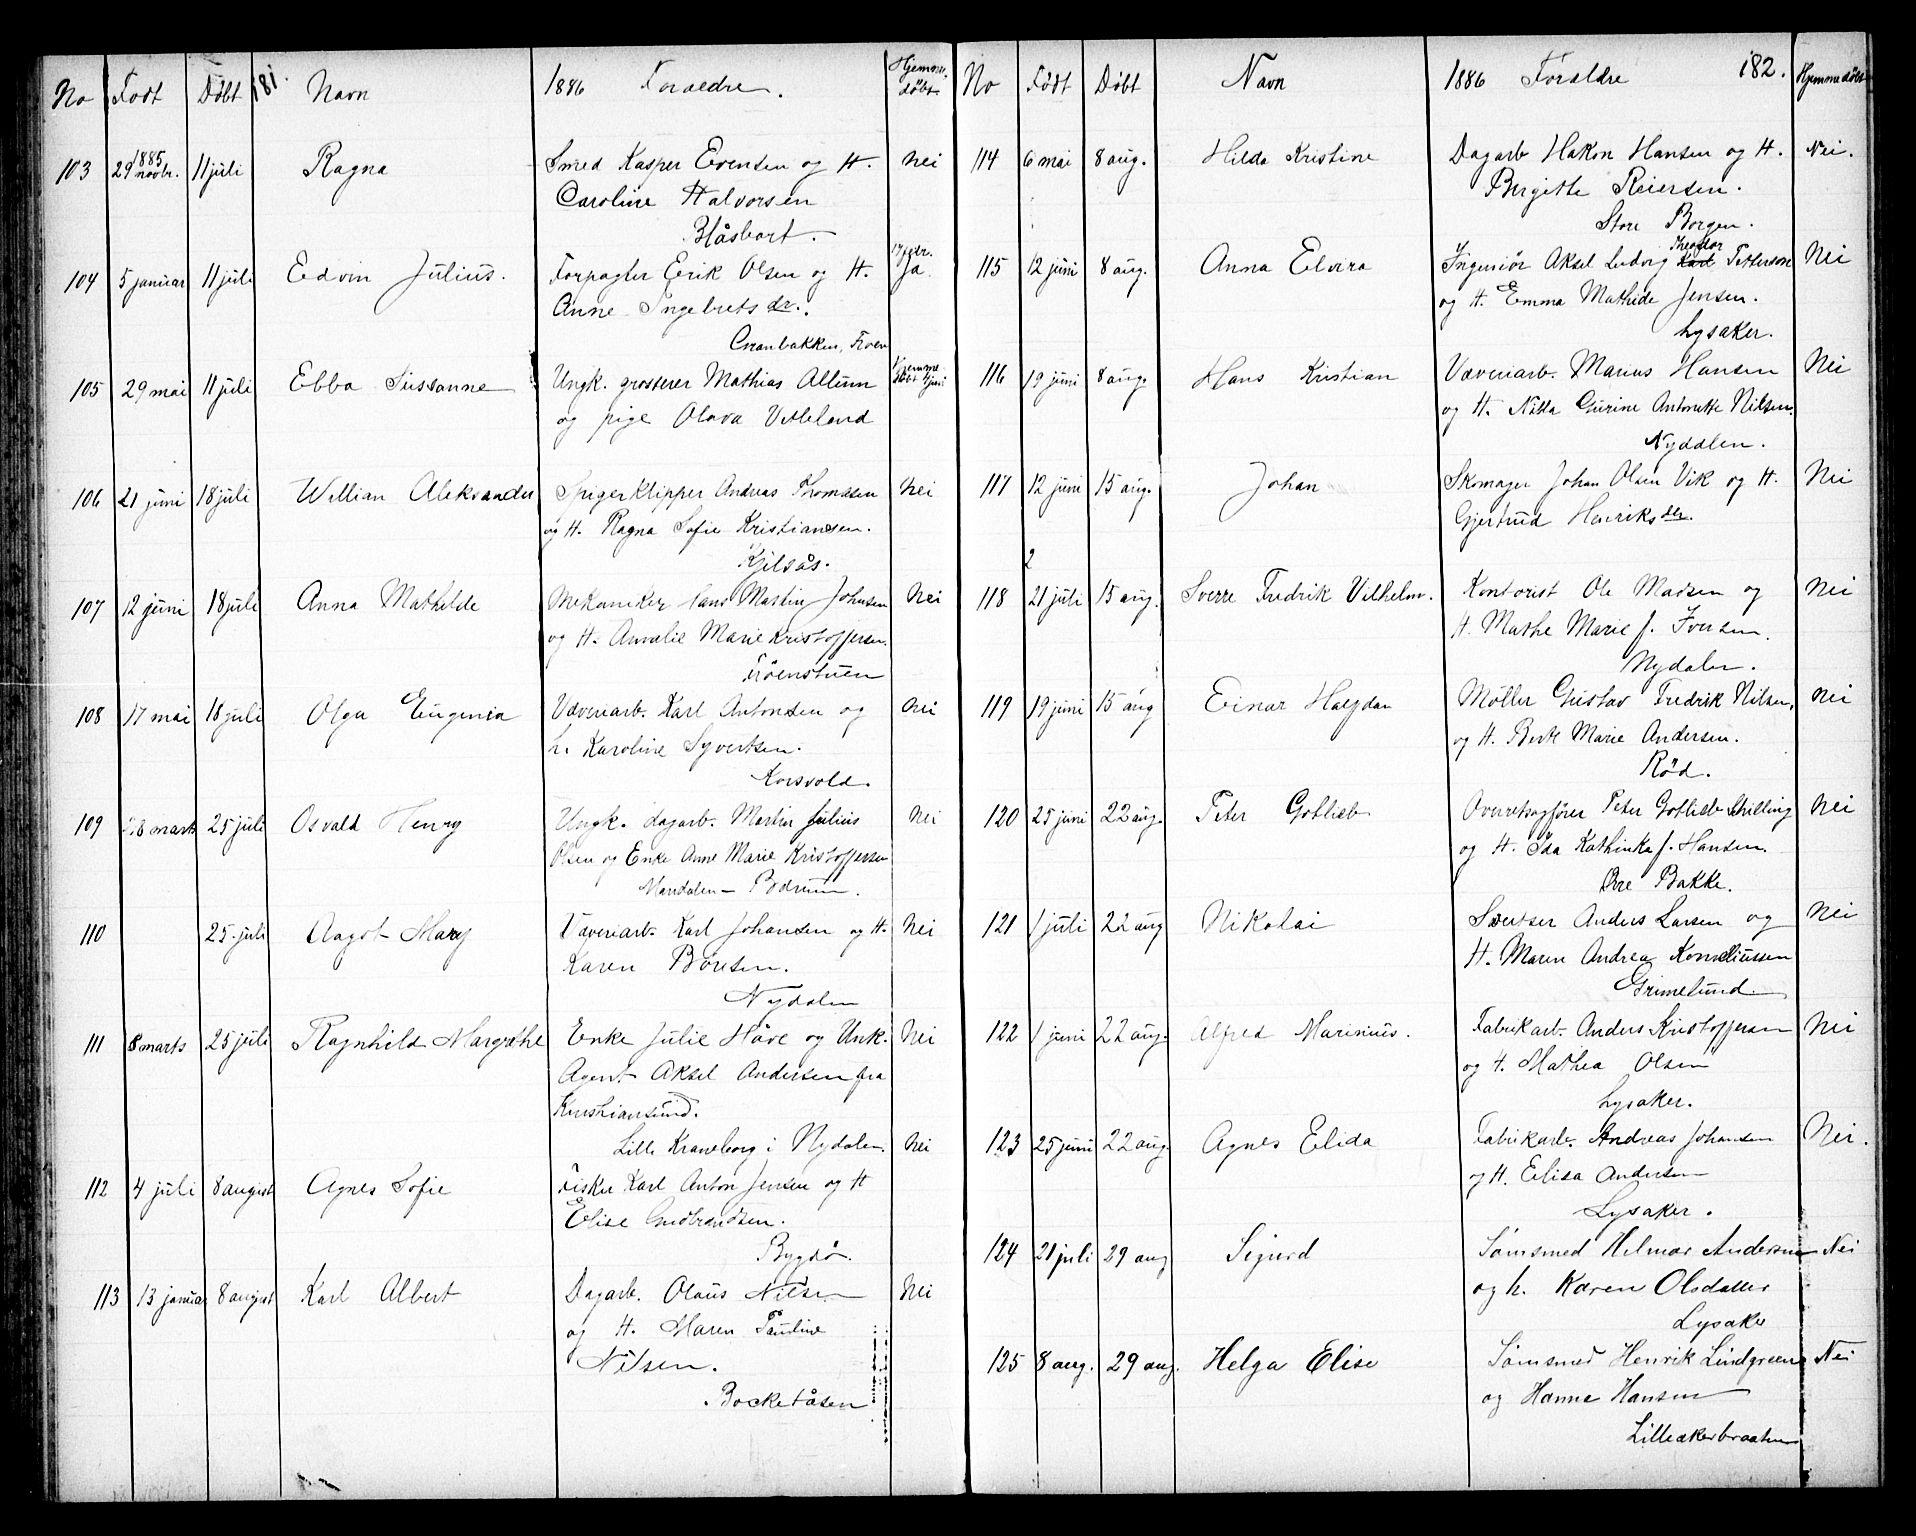 No Født Døbt 181. Navn 1886 Foraeldre. Hjemme-
døbt
103 29 1885 novbr. 11 juli Ragna Smed Kasper Evensen og H. Nei
Caroline Halvorsen
Blåsbort.
104 5 januar 11 juli Edvin Julius. Forpagter Erik Olsen og H. Ja.
Anne Ingebretsdr.
Granbakken, Frøen
105 29 mai 11 juli Ebba Sussanne Ungk. grosserer Mathias Allum Hjemme
døbt juni
og pige Olava Vetleland
106 21 juni 18 juli Willian Aleksander Spigerklipper Andreas Thomasen Nei
og H. Ragna Sofie Kristiansen.
Kjelsås.
107 12 juni 18 juli Anna Mathilde Mekaniker Hans Martin Johnsen Nei
og H. Amalie Marie Kristoffersen.
Frøenstuen
108 17 mai 18 juli Olga Eugenia Væveriarb. Karl Antonsen og Nei
h. Karoline Syvertsen.
Korsvold.
109 28 marts 25 juli Osvald Henry Ungk. dagarb. Martin Julius Nei
Olsen og Enke Anne Marie Kristoffersen
Mandalen - Bodrum.
110 25 juli Aagot Mary Væveriarb. Karl Johansen og H. Nei
Karen Boresen.
Nydalen
111 8 marts 25 juli Ragnhild Margrethe Enke Julie Håve og Unk. Nei
Agent Aksel Andersen fra
Kristiansund.
Lille Kraneborg i Nydalen. Nei
112 4 juli 8 august Agnes Sofie Fisker Karl Anton Jensen og H
Elise Gudbrandsen.
Bygdø.
113 13 januar 8 august Karl Albert Dagarb. Olaus Nilsen Nei
og H. Maren Pauline
Nilsen.
Bocketåsen
No Født Døbt Navn 1886 Foraldre 182. Hjemmedøbt
114 6 mai 8 aug. Hilda Kristine Dagarb Hakon Hansen og H. Nei.
Birgitte Reiersen.
Store Borgen.
Theodor
115 12 juni 8 aug. Anna Elvira Ingeniør Aksel Ludvig Karl Petterson Nei
og H. Emma Mathilde Jensen.
Lysaker.
116 19 juni 8 aug. Hans Kristian Væveriarb. Marius Hansen Nei
og H. Nilla Gurine Antonette Nilsen.
Nyddlen.
117 12 juni 15 aug. Johan Skomager Johan Olsen Vik og H. Nei
Gjertrud Henriksdtr.
2
118 21 juli 15 aug. Sverre Fredrik Vilhelm. Kontorist Ole Madsen og Nei
H. Mathe Marie f. Iversen.
Nydalen.
119 19 juni 15 aug Einar Halfdan Møller Gustav Fredrik Nilsen, Nei
og H. Berte Marie Andersen.
Rød.
120 25 juni 22 aug. Peter Gotlieb Overretsagfører Peter Gotlieb Schilling Nei
og H. Ida Kathinka f. Hansen.
Øvre Bakke.
121 1 juli 22 aug Nikolai Sveitser Anders Larsen og Nei
H. Maren Andrea Korneliussen
Grimelund.
122 1 juni 22 aug. Alfred Marinius. Fabrikarb. Anders Kristoffersen Nei
og H. Mathea Olsen
Lysaker.
123 25 juni 22 aug. Agnes Elida Fabrikarb. Andreas Johansen Nei.
og H. Elisa Andersen
Lysaker.
124 21 juli 29 aug Sigurd Sømsmed Hilmar Andersen Nei
og h. Karen Olsdatter
Lysaker
125 8 aug. 29 aug. Helga Elise Sømsmed Henrik Lindgreen Nei
og Hanne Hansen
Lilleakerbraaten